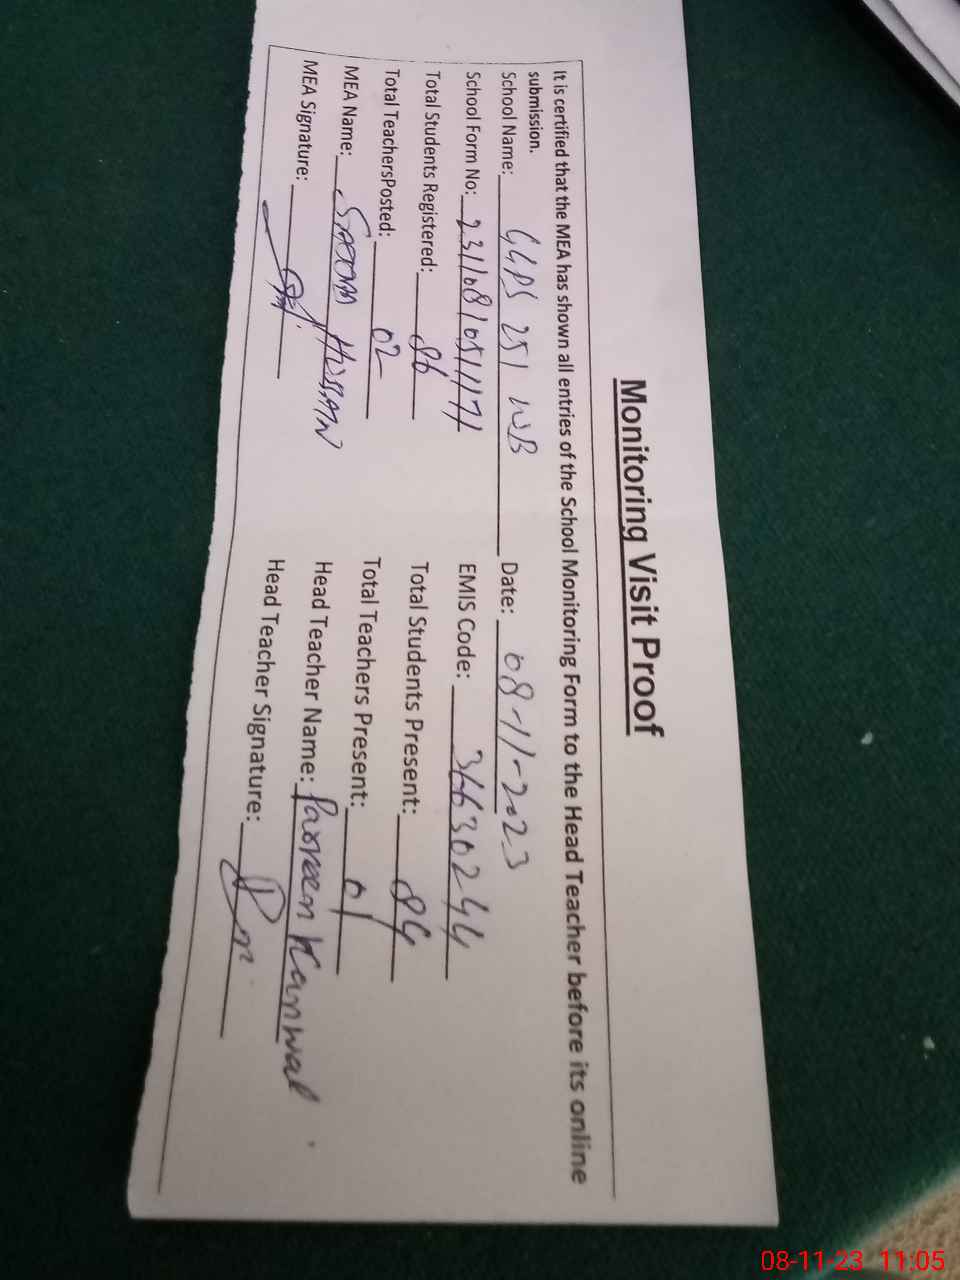 Monitoring Visit Proof
It is certified that the MEA has shown all entries of the School Monitoring Form to the Head Teacher before its online
submission.
School Name: GGPS 251 WB Date: 08-11-2023
School Form No: 2311081051171 EMIS Code: 36630244
Total Students Registered: 86 Total Students Present: 84
Total TeachersPosted: 02 Total Teachers Present: 01
MEA Name: HUSSAIN Head Teacher Name: Parveen Kanwal
MEA Signature: Head Teacher Signature:
08-11-23 11:05